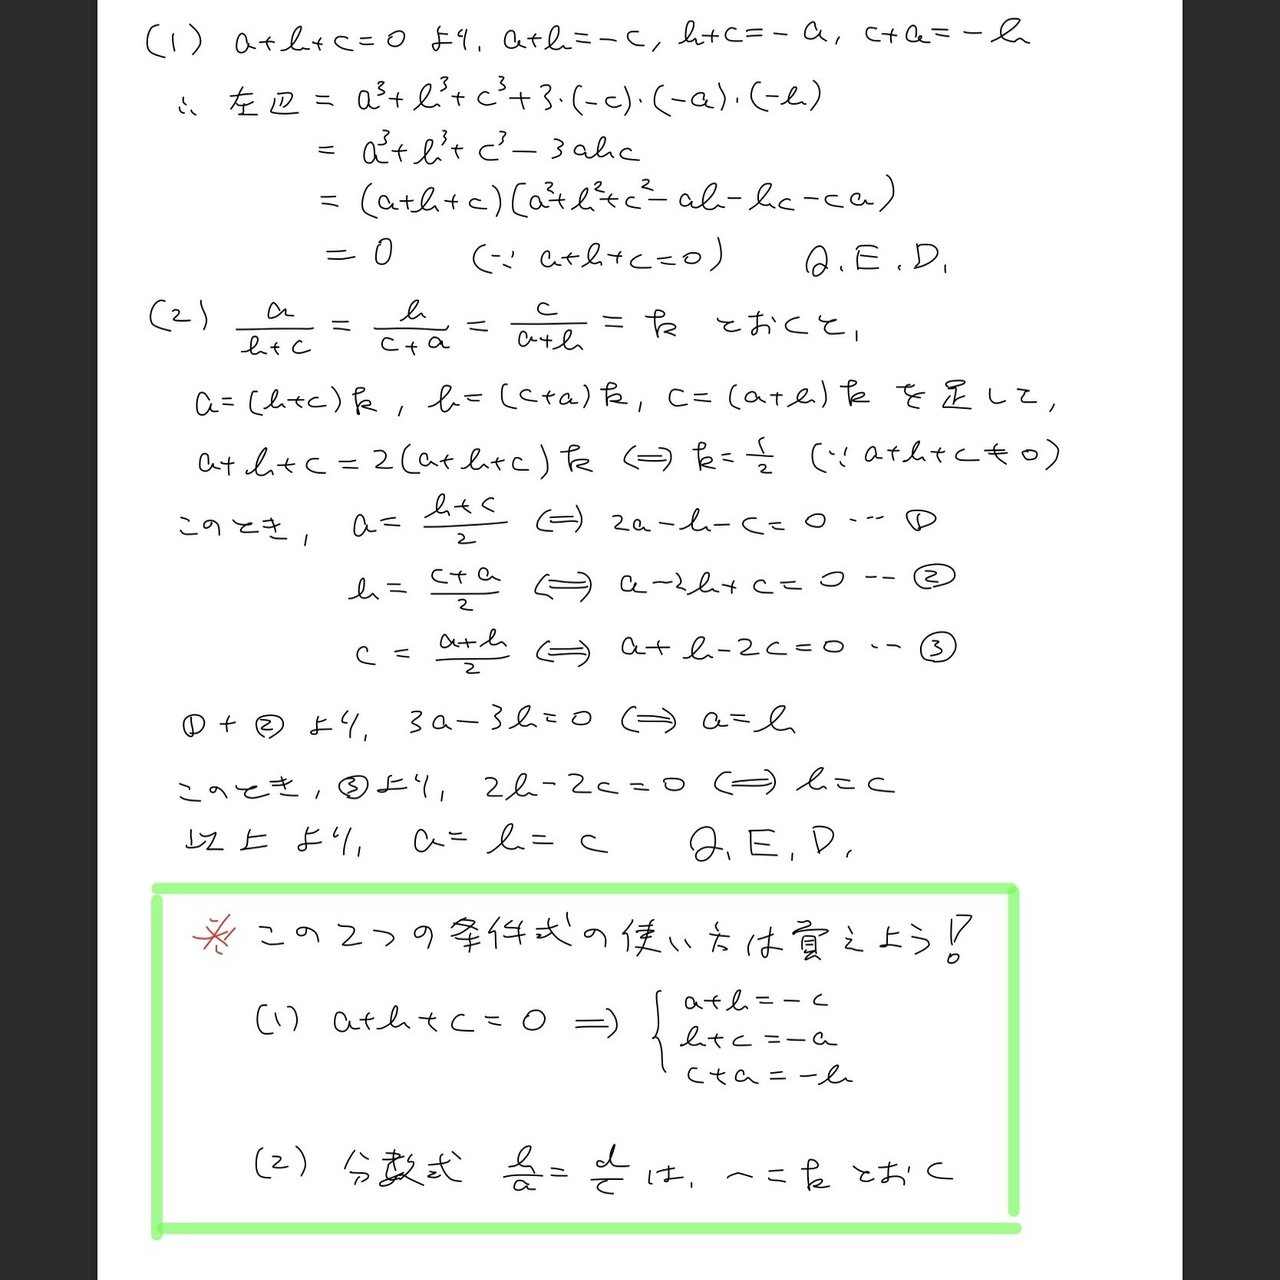 (1) a+b+c=0 より, a+b=-c, b+c=-a, c+a=-b
∴ 左辺 = a³+b³+c³+3·(-c)·(-a)·(-b)
= a³+b³+c³-3abc
= (a+b+c)(a²+b²+c²-ab-bc-ca)
= 0 (∵ a+b+c=0) Q.E.D.
(2) a/(b+c) = b/(c+a) = c/(a+b) = k とおくと,
a=(b+c)k, b=(c+a)k, c=(a+b)k を足して,
a+b+c=2(a+b+c)k ⇔ k=1/2 (∵ a+b+c≠0)
このとき, a=(b+c)/2 ⇔ 2a-b-c=0 … ①
b=(c+a)/2 ⇔ a-2b+c=0 … ②
c=(a+b)/2 ⇔ a+b-2c=0 … ③
①+②より, 3a-3b=0 ⇔ a=b
このとき, ③より, 2b-2c=0 ⇔ b=c
以上より, a=b=c Q.E.D.
※この2つの条件式の使い方は覚えよう!!
(1) a+b+c=0 ⇒ { a+b=-c
b+c=-a
c+a=-b
(2) 分数式 b/a = d/c は, 〜=k とおく